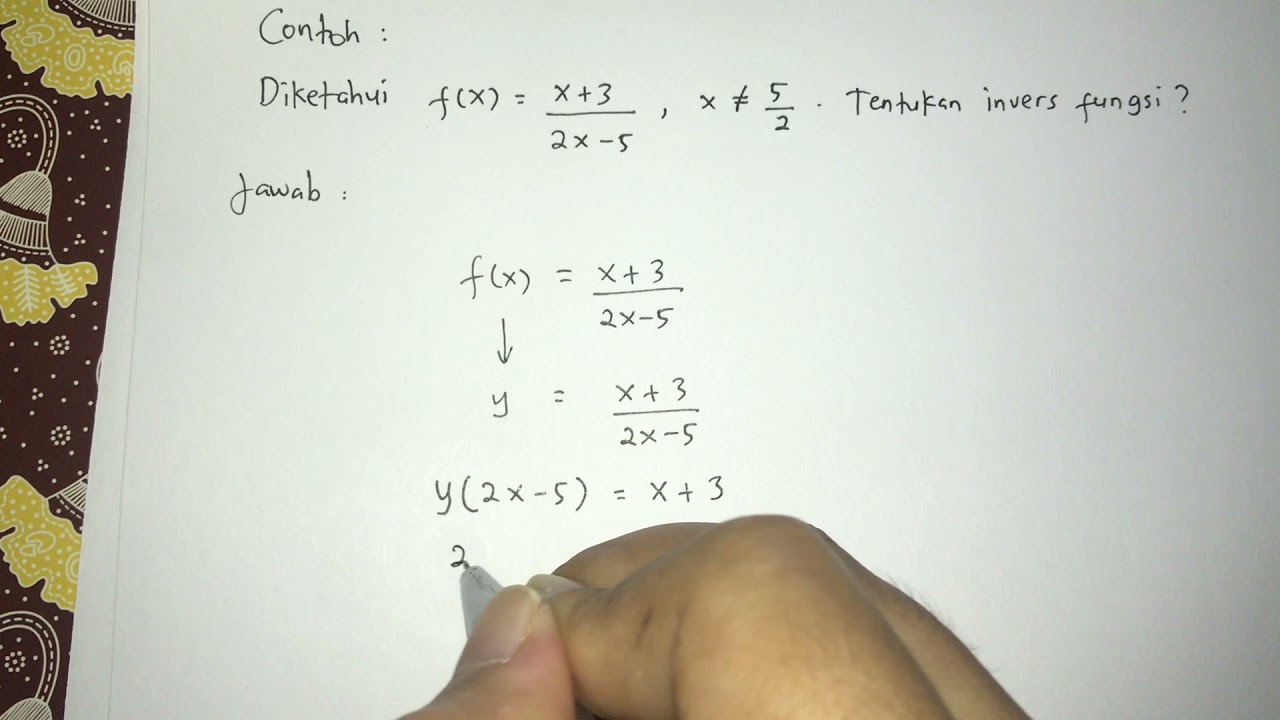 Contoh :
Diketahui f(x) = x+3 / 2x-5 , x ≠ 5/2 . Tentukan invers fungsi ?
Jawab :
f(x) = x+3 / 2x-5
↓
y = x+3 / 2x-5
y(2x-5) = x+3
2